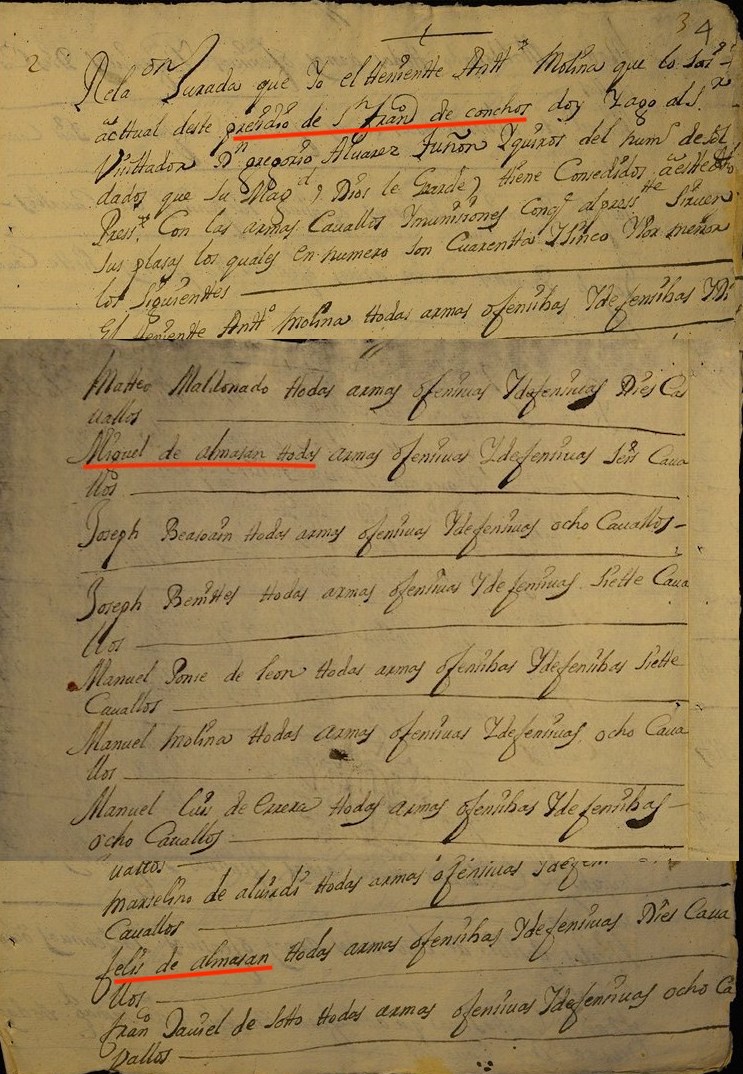 2
3 4
Relaon Jurada que Yo el theniente Antto Molina que lo soi
acttual deste presidio de Sn franco de conchos doy Y ago al Sr
Vissitador Dn gregorio Alvarez Tuñon Y quiros del numo de sol
dados que su Magd (Dios le Guarde) thiene Consedidos a estte dho
Presso Con las armas Cauallos Y munisiones Conqe al pressentte siruen
sus plasas los quales en numero son Cuarentta Y sinco Y por menor
los siguienttes
El theniente Antto Molina thodas armas ofensibas Y defensibas Y Di
Matteo Maldonado thodas armas ofensiuas Y defensiuas Dies Ca
uallos
Miguel de almasan thodas armas ofensiuas Y defensiuas seis Caua
llos
Joseph Beasoain thodas armas ofensiuas Y defensiuas ocho Cauallos
Joseph Benittes thodas armas ofensiuas Y defensiuas Siette Caua
llos
Manuel Ponse de leon thodas armas ofensibas Y defensibas Siette
Cauallos
Manuel Molina thodas armas ofensiuas Y defensiuas ocho Caua
llos
Manuel Luis de Errera thodas armas ofensibas Y defensibas
ocho Cauallos
uallos
Marselino de aluisdi thodas armas ofensiuas Y defen
Cauallos
felis de almasan thodas armas ofensibas Y defensiuas Dies Caua
llos
fran Dauiel de Sotto thodas armas ofensiuas Y defensiuas ocho Ca
vallos